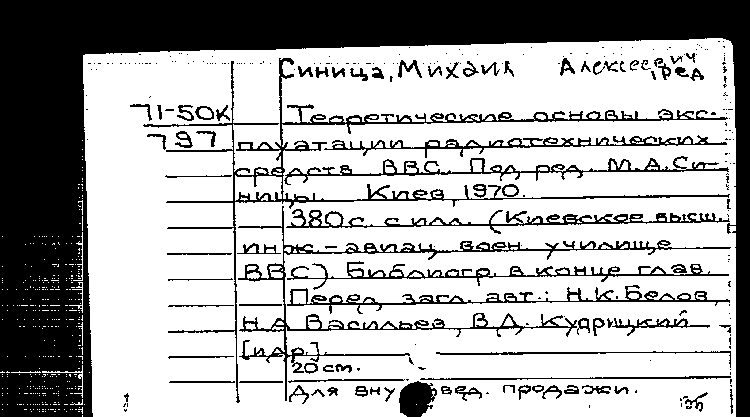 Синица, Михаил Алексеевич, ред
71-50К
797
Теоретические основы экс-
плуатации радиотехнических
средств ВВС. Под ред. М.А.Си-
ницы. Киев, 1970.
380с. с илл. (Киевское высш.
инж.-авиац. воен. училище
ВВС). Библиогр. в конце глав.
Перед загл. авт.: Н.К.Белов,
Н.А Васильев, В.Д. Кудрицкий
[и др.].
20 cm.
Для вну вед. продажи.